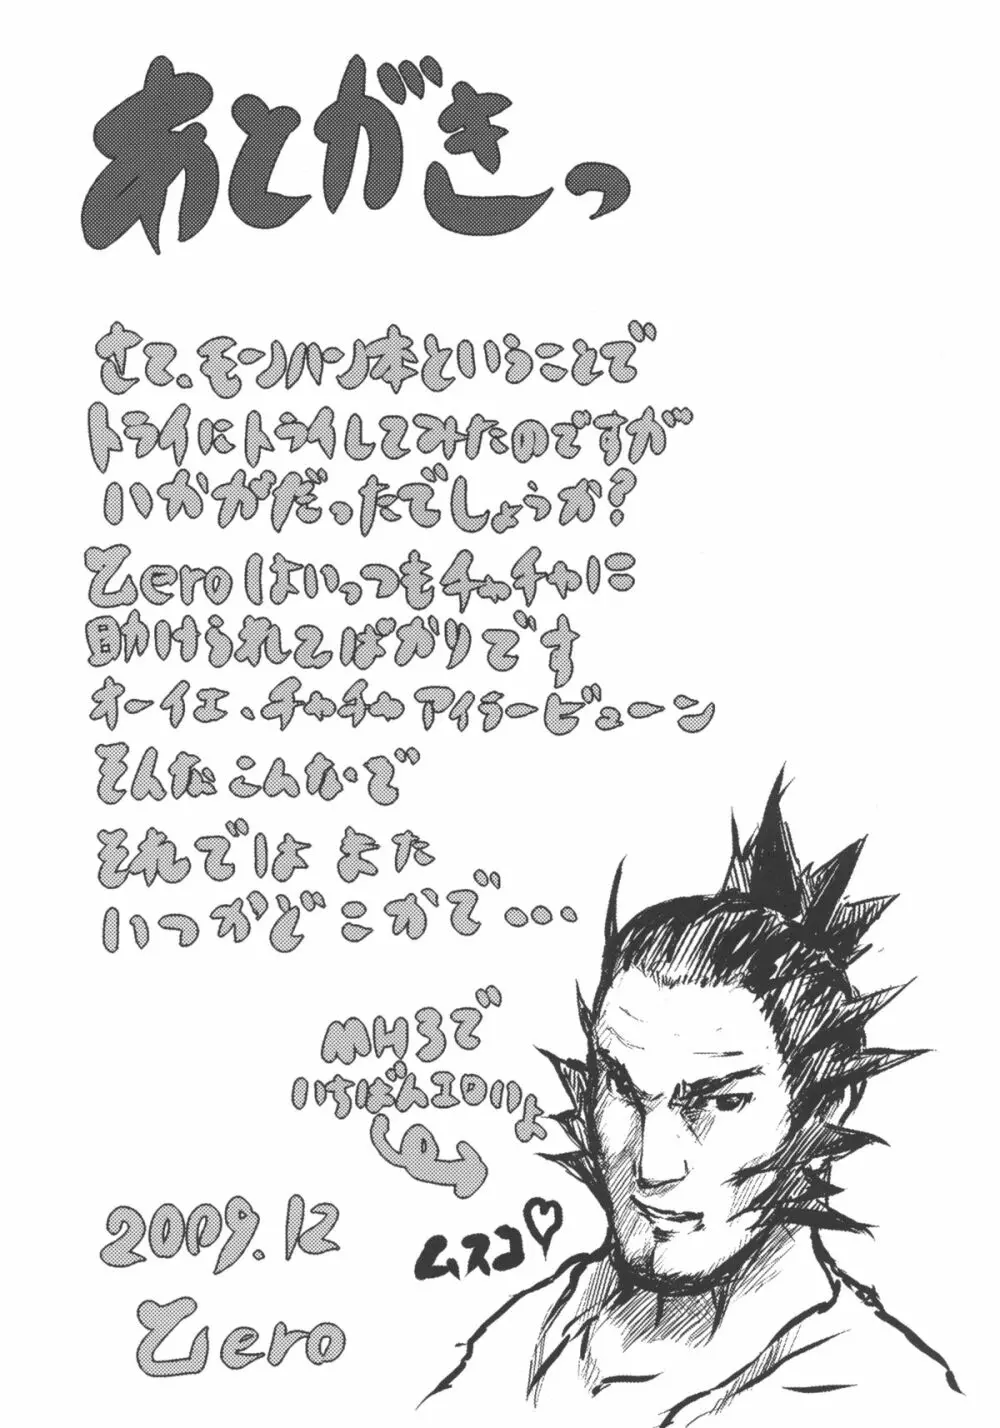 あとがきっ
さて、モンハン本ということで
トライにトライしてみたのですが
いかがだったでしょうか?
Zeroはいっつもチャチャに
助けられてばかりです
オーイエ、チャチャアイラービューン
そんなこんなで
それではまた
いつかどこかで・・・
MH3で
いちばんエロいよ
ムスコ♡
2009.12
Zero